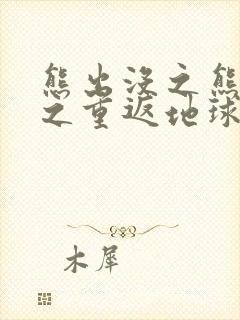 熊出没之熊
之重返地球
木犀